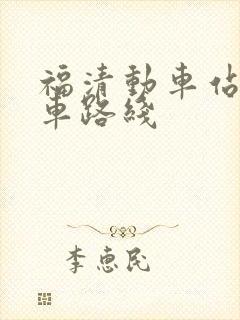 福清動車佔
車路綫
李惠民